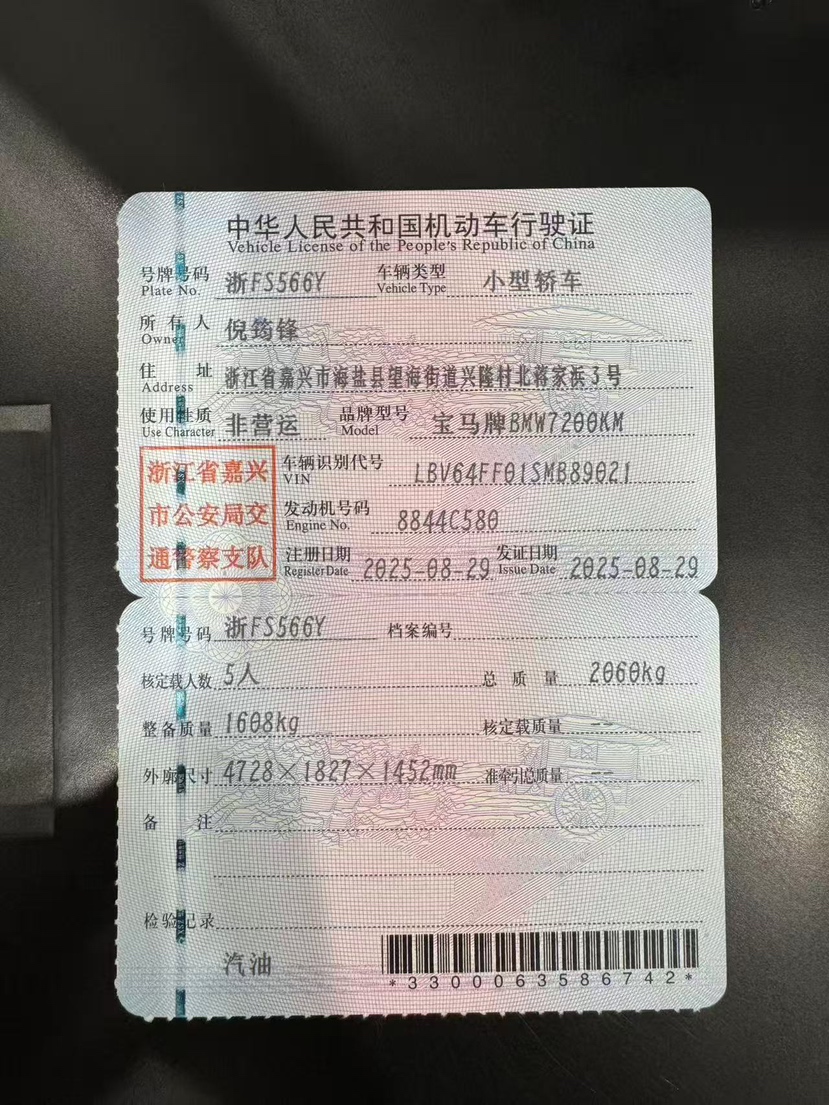 中华人民共和国机动车行驶证
Vehicle License of the People's Republic of China
号牌号码 浙FS566Y 车辆类型 小型轿车
Plate No. Vehicle Type
所有人 倪筠锋
Owner
住址 浙江省嘉兴市海盐县望海街道兴隆村北蒋家浜3号
Address
使用性质 非营运 品牌型号 宝马牌BMW7200KM
Use Character Model
浙江省嘉兴
市公安局交
通警察支队
车辆识别代号 LBV64FF01SMB89021
VIN
发动机号码 8844C580
Engine No.
注册日期 2025-08-29 发证日期 2025-08-29
Register Date Issue Date
号牌号码 浙FS566Y 档案编号
核定载人数 5人 总质量 2060kg
整备质量 1608kg 核定载质量 --
外廓尺寸 4728×1827×1452mm 准牵引总质量 --
备注
检验记录
汽油
*3300063586742*